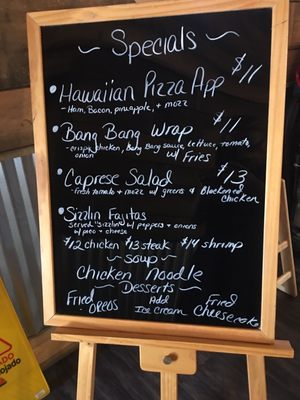 ~ Specials ~
• Hawaiian Pizza App $11
- Ham, Bacon, pineapple, + mozz
• Bang Bang Wrap $11
- crispy chicken, Bang Bang sauce, lettuce, tomato,
onion w/ Fries
• Caprese Salad $13
- fresh tomato + mozz w/ greens & Blackened
chicken
• Sizzlin Fajitas
Served "sizzlin" w/ peppers + onions
w/ pico + cheese
$12 chicken $13 steak $14 shrimp
~ Soup ~
Chicken Noodle
~ Desserts ~
Fried Oreos
Add Ice Cream
Fried Cheesecake